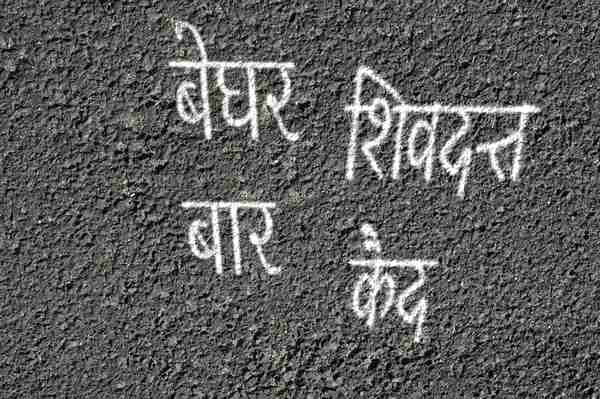 बेघर
शिवदत्त
बार
कैद